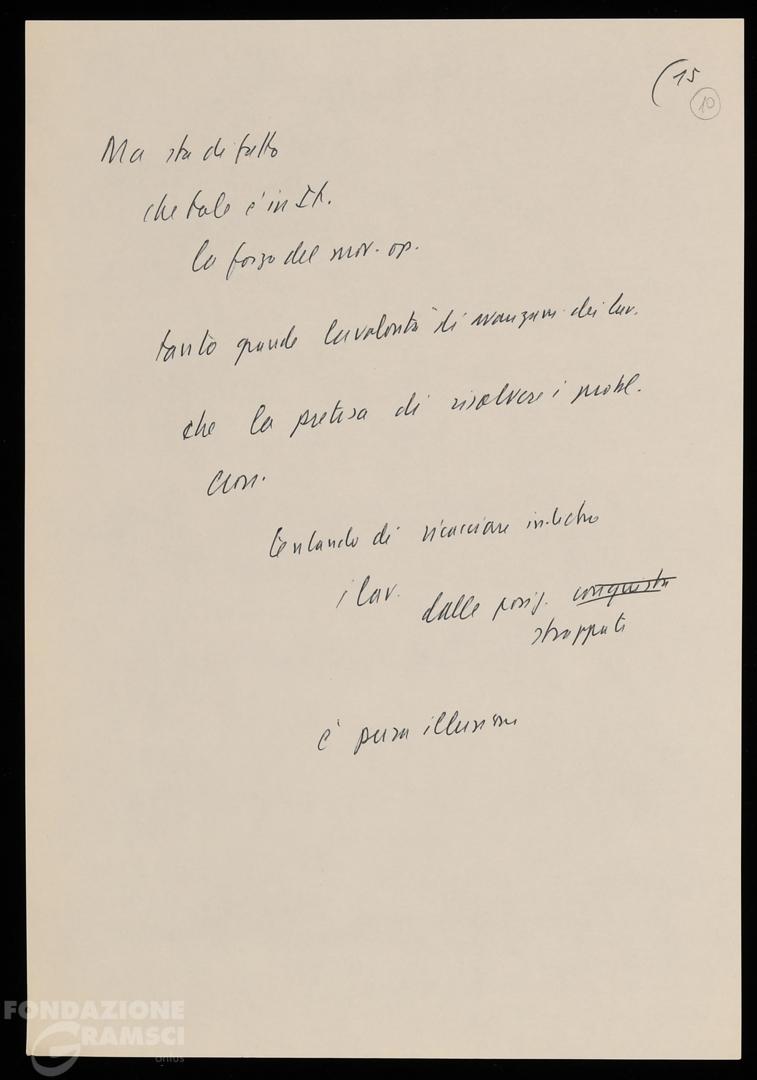 (15
10
Ma sta di fatto
che tale è in It.
la forza del mov. op.
tanto grande la volontà di avanzam. dei lav.
che la pretesa di risolvere i probl.
tentando di ricacciare indietro
i lav. dalle posiz. conquista
strappate
è pura illusione
FONDAZIONE
GRAMSCI
onlus